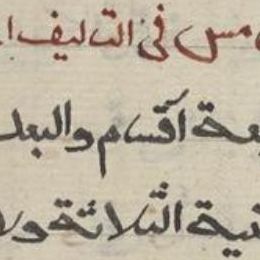 مس فى التاليف ا
عة اقسام والبعد
نية الثلاثة ولا